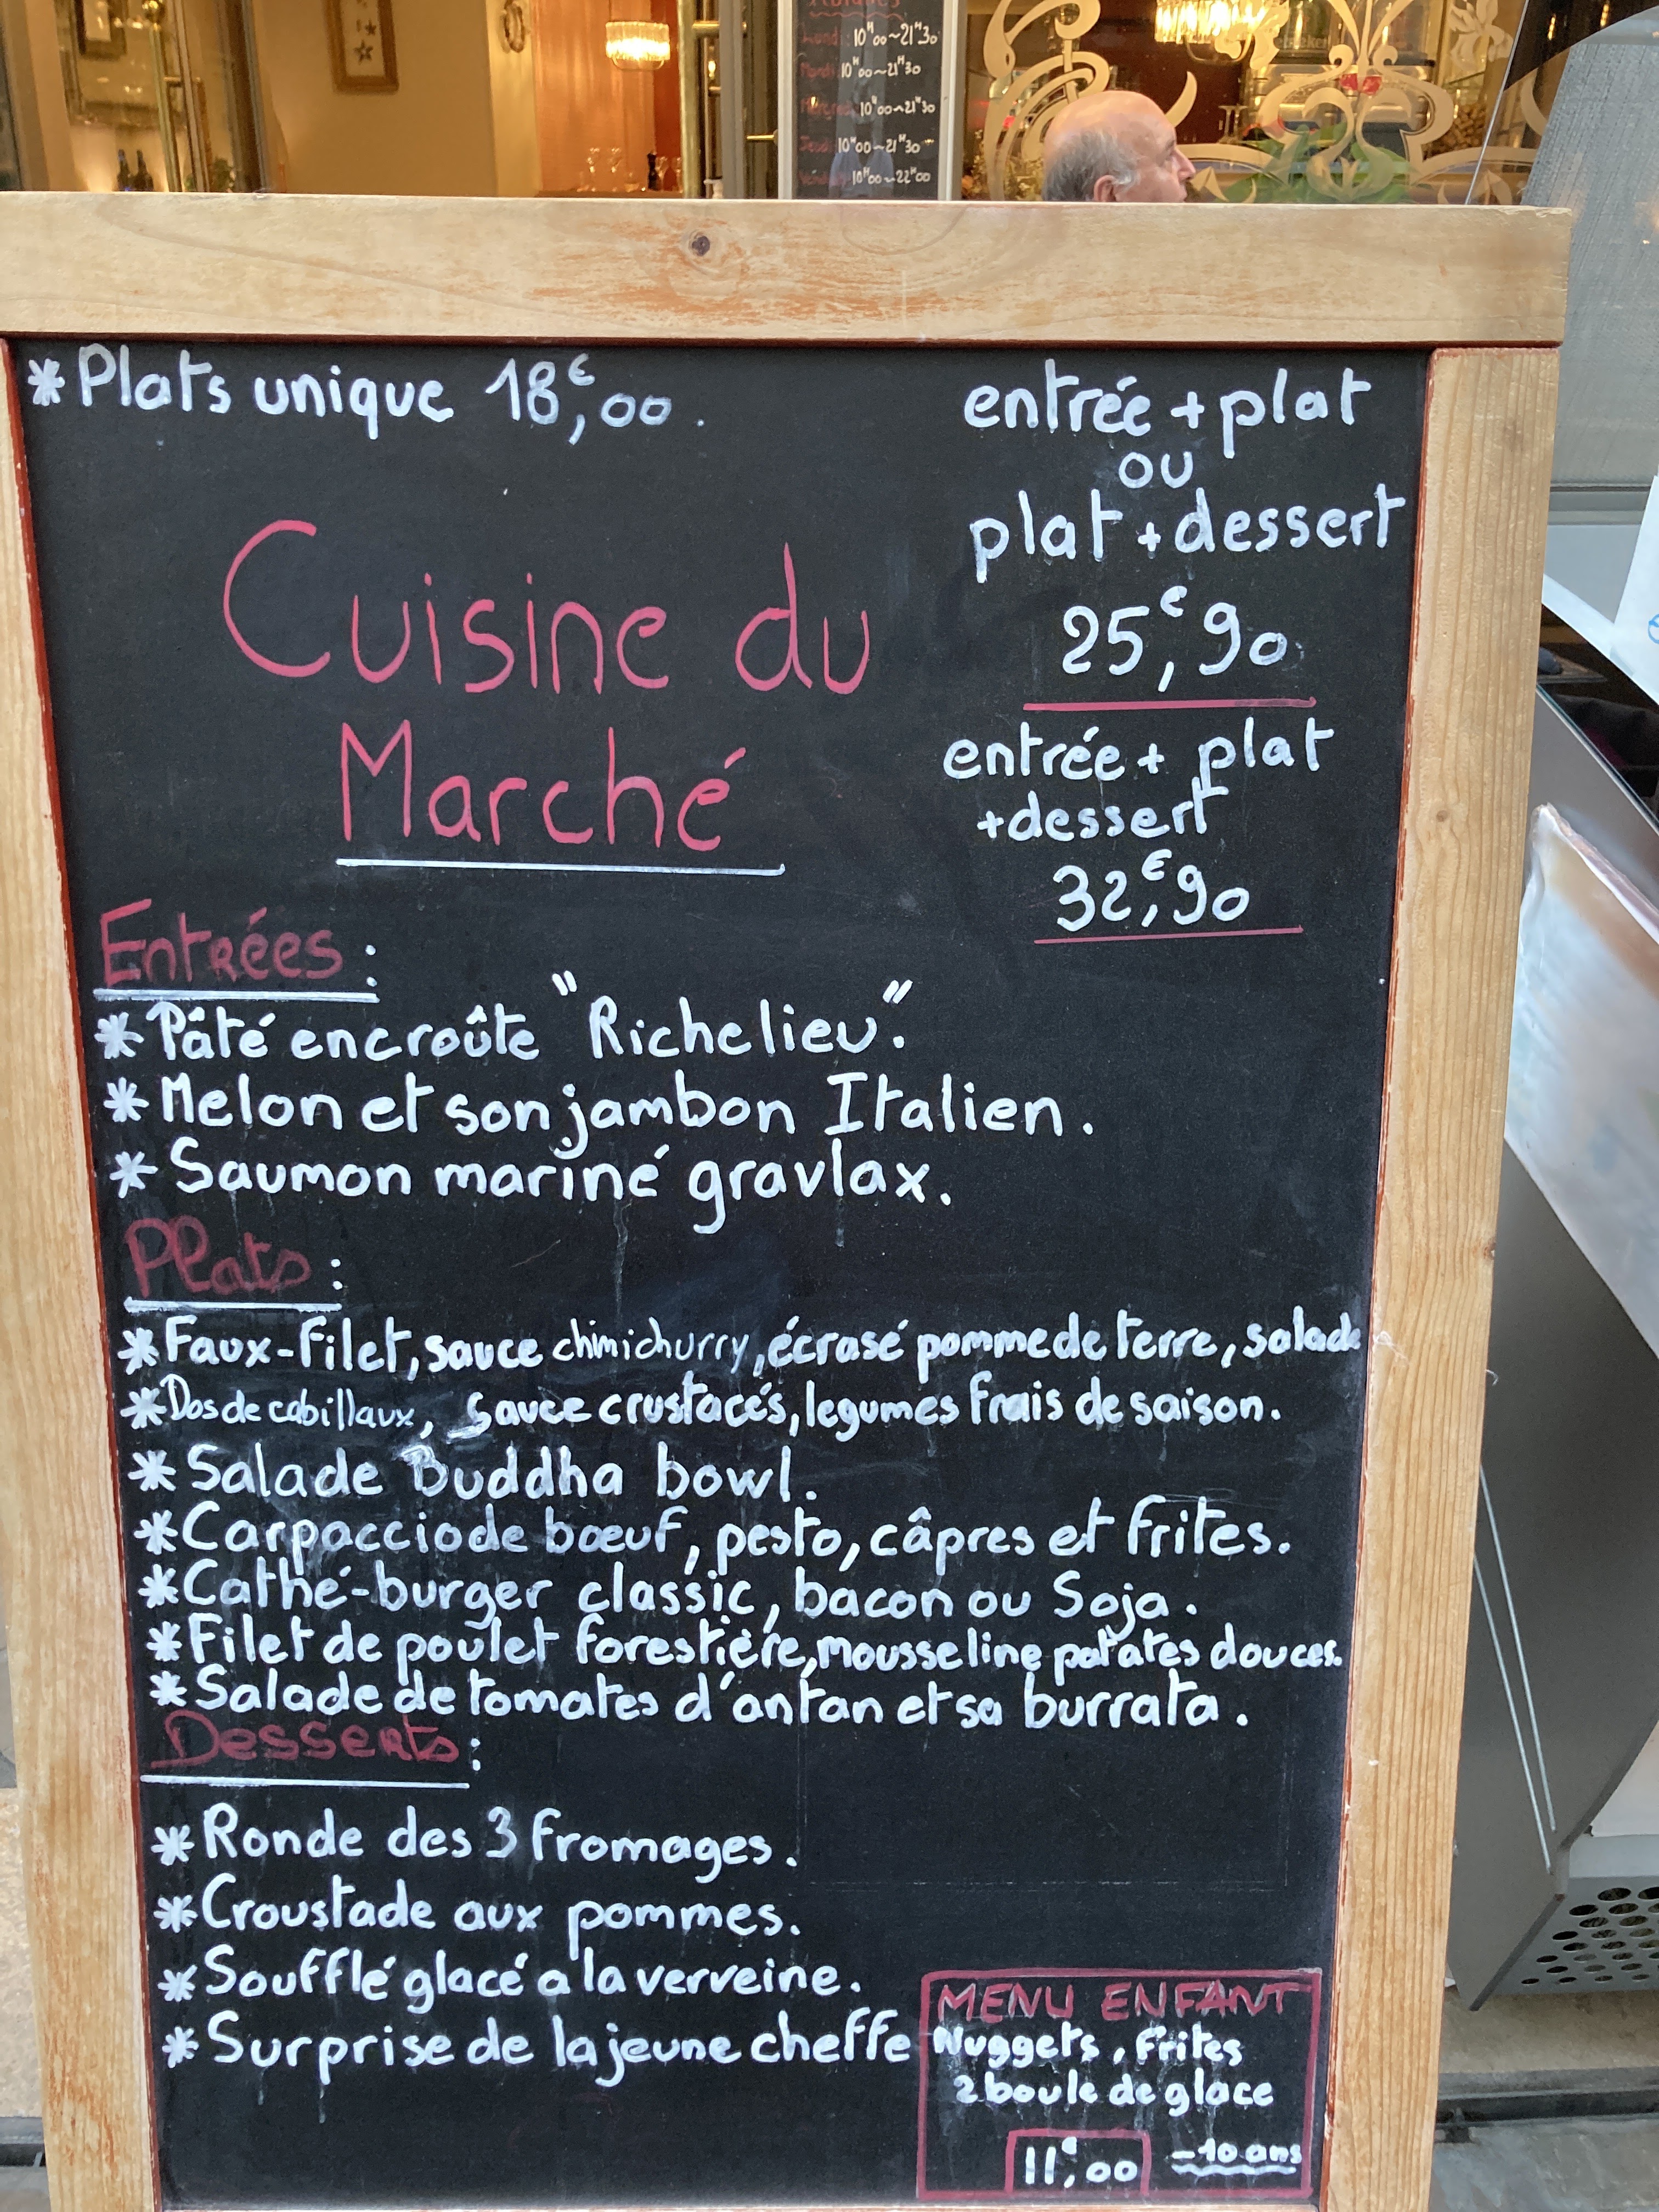 Lundi : 10H00~21H30
Mardi 10H00~21H30
10H00~21H30
Jeudi 10H00~21H30
Vendredi 10H00~22H00
*Plats unique 18€,00.
entrée + plat
ou
plat + dessert
25€,90
entrée + plat
+dessert
32€,90
Cuisine du
Marché
Entrées :
*Pâté encroûte "Richelieu".
*Melon et son jambon Italien.
*Saumon mariné gravlax.
Plats :
*Faux-Filet, sauce chimichurry, écrasé pomme de terre, salade
*Dos de cabillaux, Sauce crustacés, legumes frais de saison.
*Salade Buddha bowl.
*Carpaccio de bœuf, pesto, câpres et frites.
*Cathé-burger classic, bacon ou Soja.
*Filet de poulet forestière, mousseline patates douces.
*Salade de tomates d'antan et sa burrata.
Desserts :
*Ronde des 3 fromages.
*Croustade aux pommes.
*Soufflé glacé a la verveine.
*Surprise de la jeune cheffe
MENU ENFANT
Nuggets, frites
2 boule de glace
11€,00 -10 ans